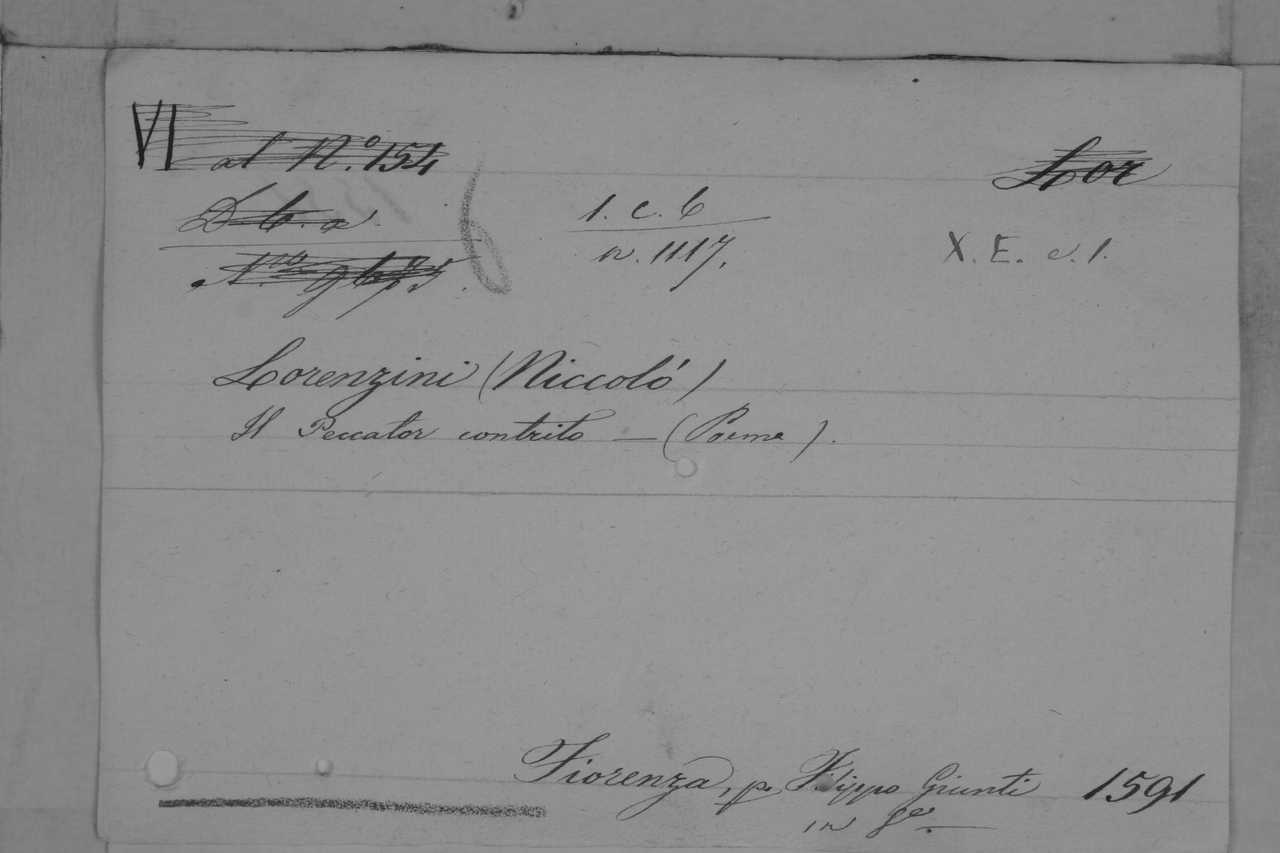 VI al N.º 154
Lor
D b. a.
1. c. 6
n. 1117.
X. E. c. 1.
Lorenzini (Niccoló)
Il Peccator contrito — (Poema).
Fiorenza, p. Filippo Giunti 1591
in 8º.